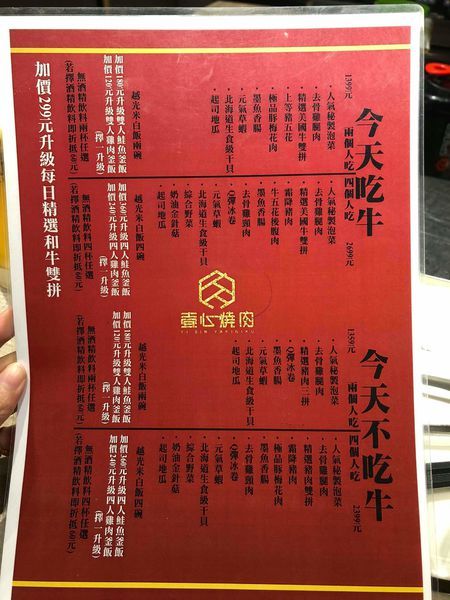 今天吃牛
兩個人吃
1399元
・人氣秘製泡菜
・去骨雞腿肉
・精選美國牛雙拼
・上等豬五花
・極品豚梅花肉
・墨魚香腸
・元氣草蝦
・北海道生食級干貝
・起司地瓜
越光米白飯兩碗
加價180元升級雙人鮭魚釜飯
加價120元升級雙人雞肉釜飯
(擇一升級)
無酒精飲料兩杯任選
(若擇酒精飲料即折抵60元)
四個人吃
2699元
・人氣秘製泡菜
・去骨雞腿肉
・精選美國牛雙拼
・霜降豬肉
・牛五花後腹肉
・去骨雞頸肉
・墨魚香腸
・Q彈冰卷
・元氣草蝦
・北海道生食級干貝
・綜合野菜
・奶油金針菇
・起司地瓜
越光米白飯四碗
加價360元升級四人鮭魚釜飯
加價240元升級四人雞肉釜飯
(擇一升級)
無酒精飲料四杯任選
(若擇酒精飲料即折抵60元)
加價299元升級每日精選和牛雙拼
壹心燒肉
YI XIN YAKINIKU
今天不吃牛
兩個人吃
1359元
・人氣秘製泡菜
・去骨雞腿肉
・精選豬肉三拼
・Q彈冰卷
・墨魚香腸
・元氣草蝦
・北海道生食級干貝
・起司地瓜
越光米白飯兩碗
加價180元升級雙人鮭魚釜飯
加價120元升級雙人雞肉釜飯
(擇一升級)
無酒精飲料兩杯任選
(若擇酒精飲料即折抵60元)
四個人吃
2399元
・人氣秘製泡菜
・去骨雞腿肉
・精選豬肉雙拼
・霜降豬肉
・極品豚梅花肉
・墨魚香腸
・去骨雞頸肉
・Q彈冰卷
・元氣草蝦
・北海道生食級干貝
・綜合野菜
・奶油金針菇
・起司地瓜
越光米白飯四碗
加價360元升級四人鮭魚釜飯
加價240元升級四人雞肉釜飯
(擇一升級)
無酒精飲料四杯任選
(若擇酒精飲料即折抵60元)